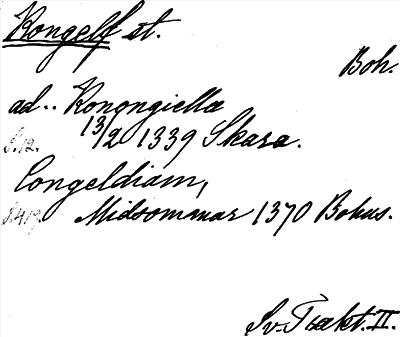 Kongelf st.
Boh.
ad.. Konongiella
13/2 1339 Skara.
S.12.
Congeldiam,
S.419. Midsommar 1370 Bohus.
Sv. Trakt. II.